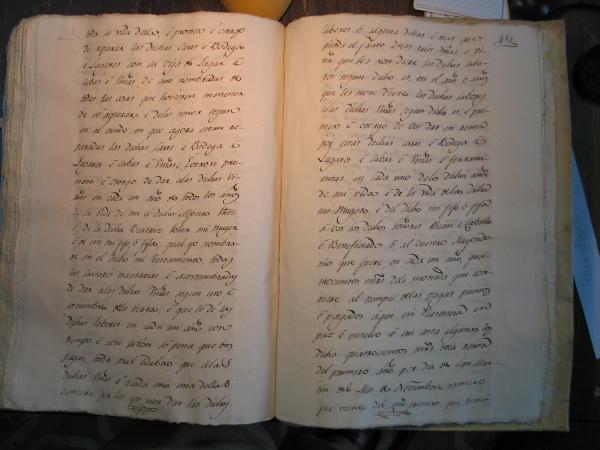 toda la vida della, é prometo é otorgo
de reparar las dichas casas é Bodega
é Lagares con su Viga de Lagar é
cubas é Viñas de suso nombradas de
todas las cosas que hovieren menester
de se reparar, é de las tener segun
en el estado en que agora estan re-
paradas las dichas casas é Bodega é
Lagares é cubas é Viñas; E otrosi pro-
meto é otorgo de dar a las dichas Vi-
ñas en cada un año de todos los años
de la vida de mi el dicho Alfonso
é de la dicha Beatriz mi muger
é de un mi fijo ó fija, qual yo nombra-
re en el dicho mi testamento, todas
las lavores necesarias é acostumbradas
de dar a las dichas Viñas segun uso é
costumbre
dichas labores en cada un año con
tiempo é con razon só pena que vos
pague todo mal é daño que á las
dichas Viñas é á cada una dellas
viniere por les yo non dar las dichas
labores ó alguna dellas é mas que
pierda el fruto de las tales Viñas ó Vi-
ña que les non diere las dichas labo-
res segun dicho es, en el año ó años
que les non diere las dichas labores
a las dichas Viñas segun dicho es, é pro-
meto é otorgo de vos dar en renta
por estas dichas casas é Bodega é
Lagares é cubas é Viñas é ferrami-
entas en cada uno de los dichos años
de mi vida é de la vida de la dicha
mi Muger é del dicho mi fijo ó fija
á vos los dichos señores Dean é Cabildo
é Beneficiados é al vuestro Mayordo-
mo que fuere en cada un año, qua-
trocientos mrs. de la moneda que cor-
riere al tiempo de las pagas puestos
é pagados aquí en Plasencia en
paz é en salvo é sin costa alguna los
dichos quatrocientos mrs. de la renta
del primero año por dia de San Mar-
tin del Mes de Noviembre primero
que viene del año primero que verná